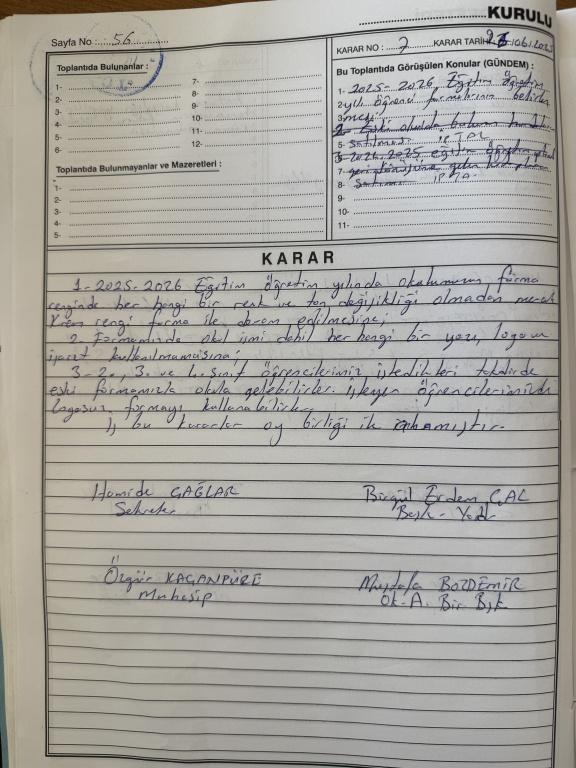 KURULU
Sayfa No : 56
KARAR NO : 7 KARAR TARİHİ
Toplantıda Bulunanlar :
1- 7-
2- 8-
3- 9-
4- 10-
5- 11-
6- 12-
Toplantıda Bulunmayanlar ve Mazeretleri :
1-
2-
3-
4-
5-
Bu Toplantıda Görüşülen Konular (GÜNDEM) :
1- 2025-2026 Eğitim öğretim
2- yılı öğrenci formalarının belirlen
3- mesi
5- İPTAL
7-
8- İPTAL
9-
10-
11-
KARAR
1- 2025-2026 Eğitim öğretim yılında okulumuzun forma
renginde her hangi bir renk ve ton değişikliği olmadan
krem rengi forma ile devam edilmesine;
2. Formamızda okul ismi dahil her hangi bir yazı, logo
işaret kullanılmamasına;
3- 2., 3. ve 4. sınıf öğrencilerimiz istedikleri takdirde
eski formamızla okula gelebilirler. İsteyen öğrencilerimizde
logosuz formayı kullanabilirler.
İş bu kararlar oy birliği ile
Hamide ÇAĞLAR Birgül Erdem ÇAL
Sekreter Başk. Yard.
Özgür Mustafa BOZDEMİR
Muhasip Ok-A. Bir. Bşk